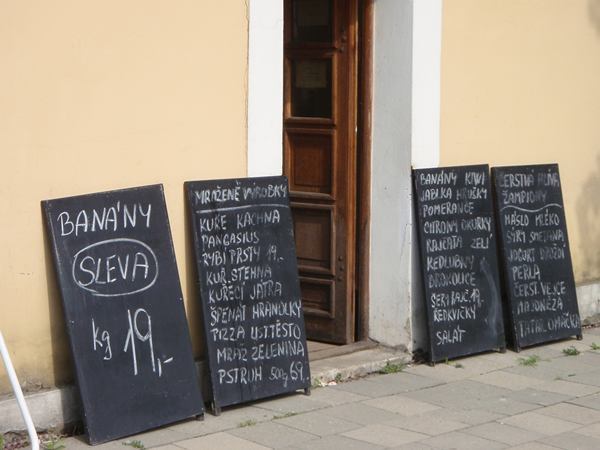 BANÁNY
SLEVA
kg 19,-
MRAŽENÉ VÝROBKY
KUŘE KACHNA
PANGASIUS
RYBÍ PRSTY 19,-
KUŘ. STEHNA
KUŘECÍ JÁTRA
ŠPENÁT HRANOLKY
PIZZA LIST. TĚSTO
MRAŽ ZELENINA
PSTRUH 500g 69,-
BANÁNY KIWI
JABLKA HRUŠKY
POMERANČE
CITRONY OKURKY
RAJČATA ZELÍ
KEDLUBNY
BROKOLICE
ŘEDKVIČKY
SALÁT
ČERSTVÁ HLÍVA
ŽAMPIONY
MÁSLO MLÉKO
SÝRY SMETANA
JOGURT DROŽDÍ
PERLA
ČERST. VEJCE
MAJONÉZA
TATAR. OMÁČKA